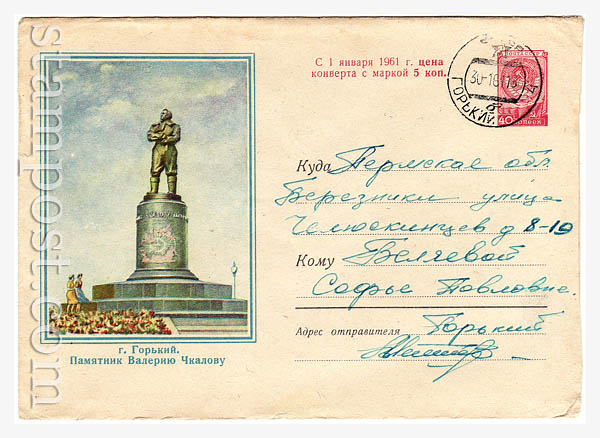 С 1 января 1961 г. цена
конверта с маркой 5 коп.
ПОЧТА СССР
40 КОПЕЕК
30-1
ГОРЬКИЙ
Куда Пермская обл.
Березники улица
Челюскинцев д 8-10
Кому Белчевой
Софье Павловне.
Адрес отправителя Горький
г. Горький.
Памятник Валерию Чкалову
stampost.com